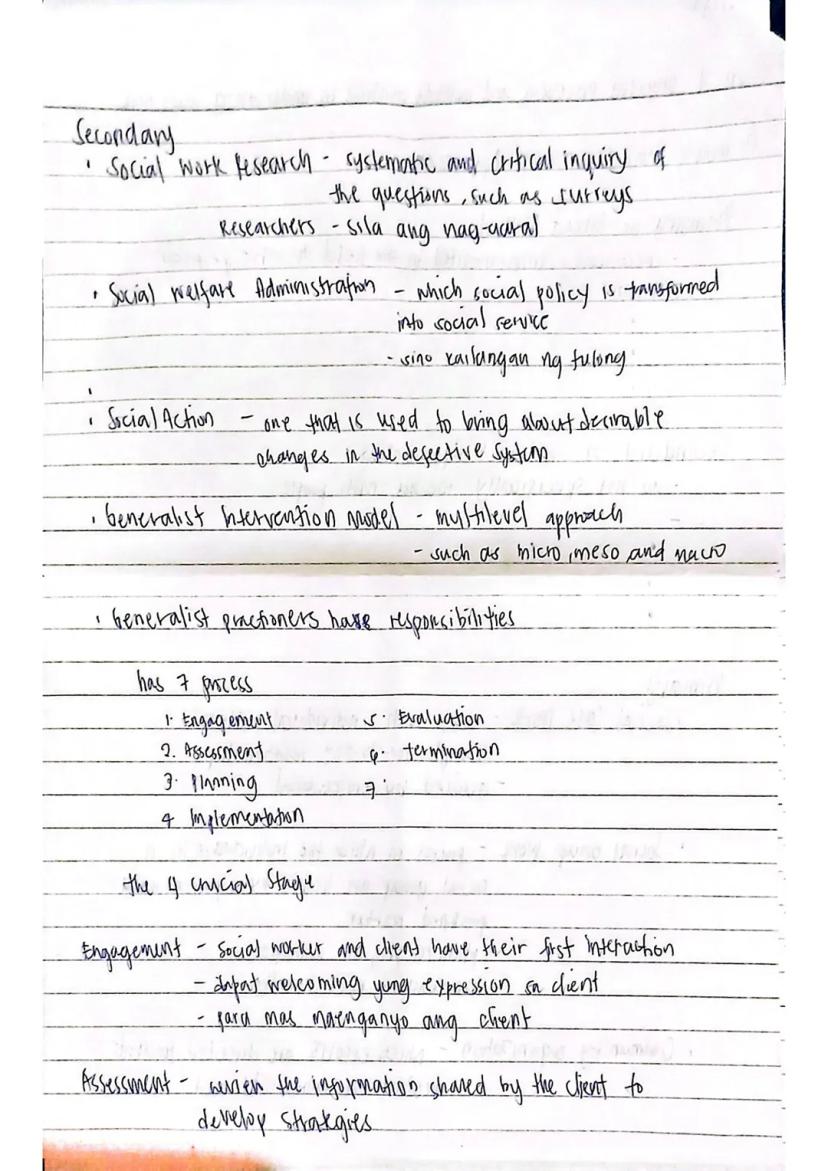 Secondary
• Social work Research - systematic and critical inquiry of
the questions, such as surveys
Researchers - sila ang nag-aaral
• Social welfare Administration - which social policy is transformed
into social service
- sino kailangan ng tulong
•
• Social Action - one that is used to bring about desirable
changes in the defective system
• Generalist Intervention Model - multilevel approach
- such as micro, meso and macro
• Generalist practioners have responsibilities
has 7 process
1. Engagement 5. Evaluation
2. Assessment 6. termination
3. Planning 7.
4 Implementation
the 4 crucial Stage
Engagement - social worker and client have their first interaction
- dapat welcoming yung expression sa client
- para mas maenganyo ang client
Assessment - the information shared by the client to
develop strategies